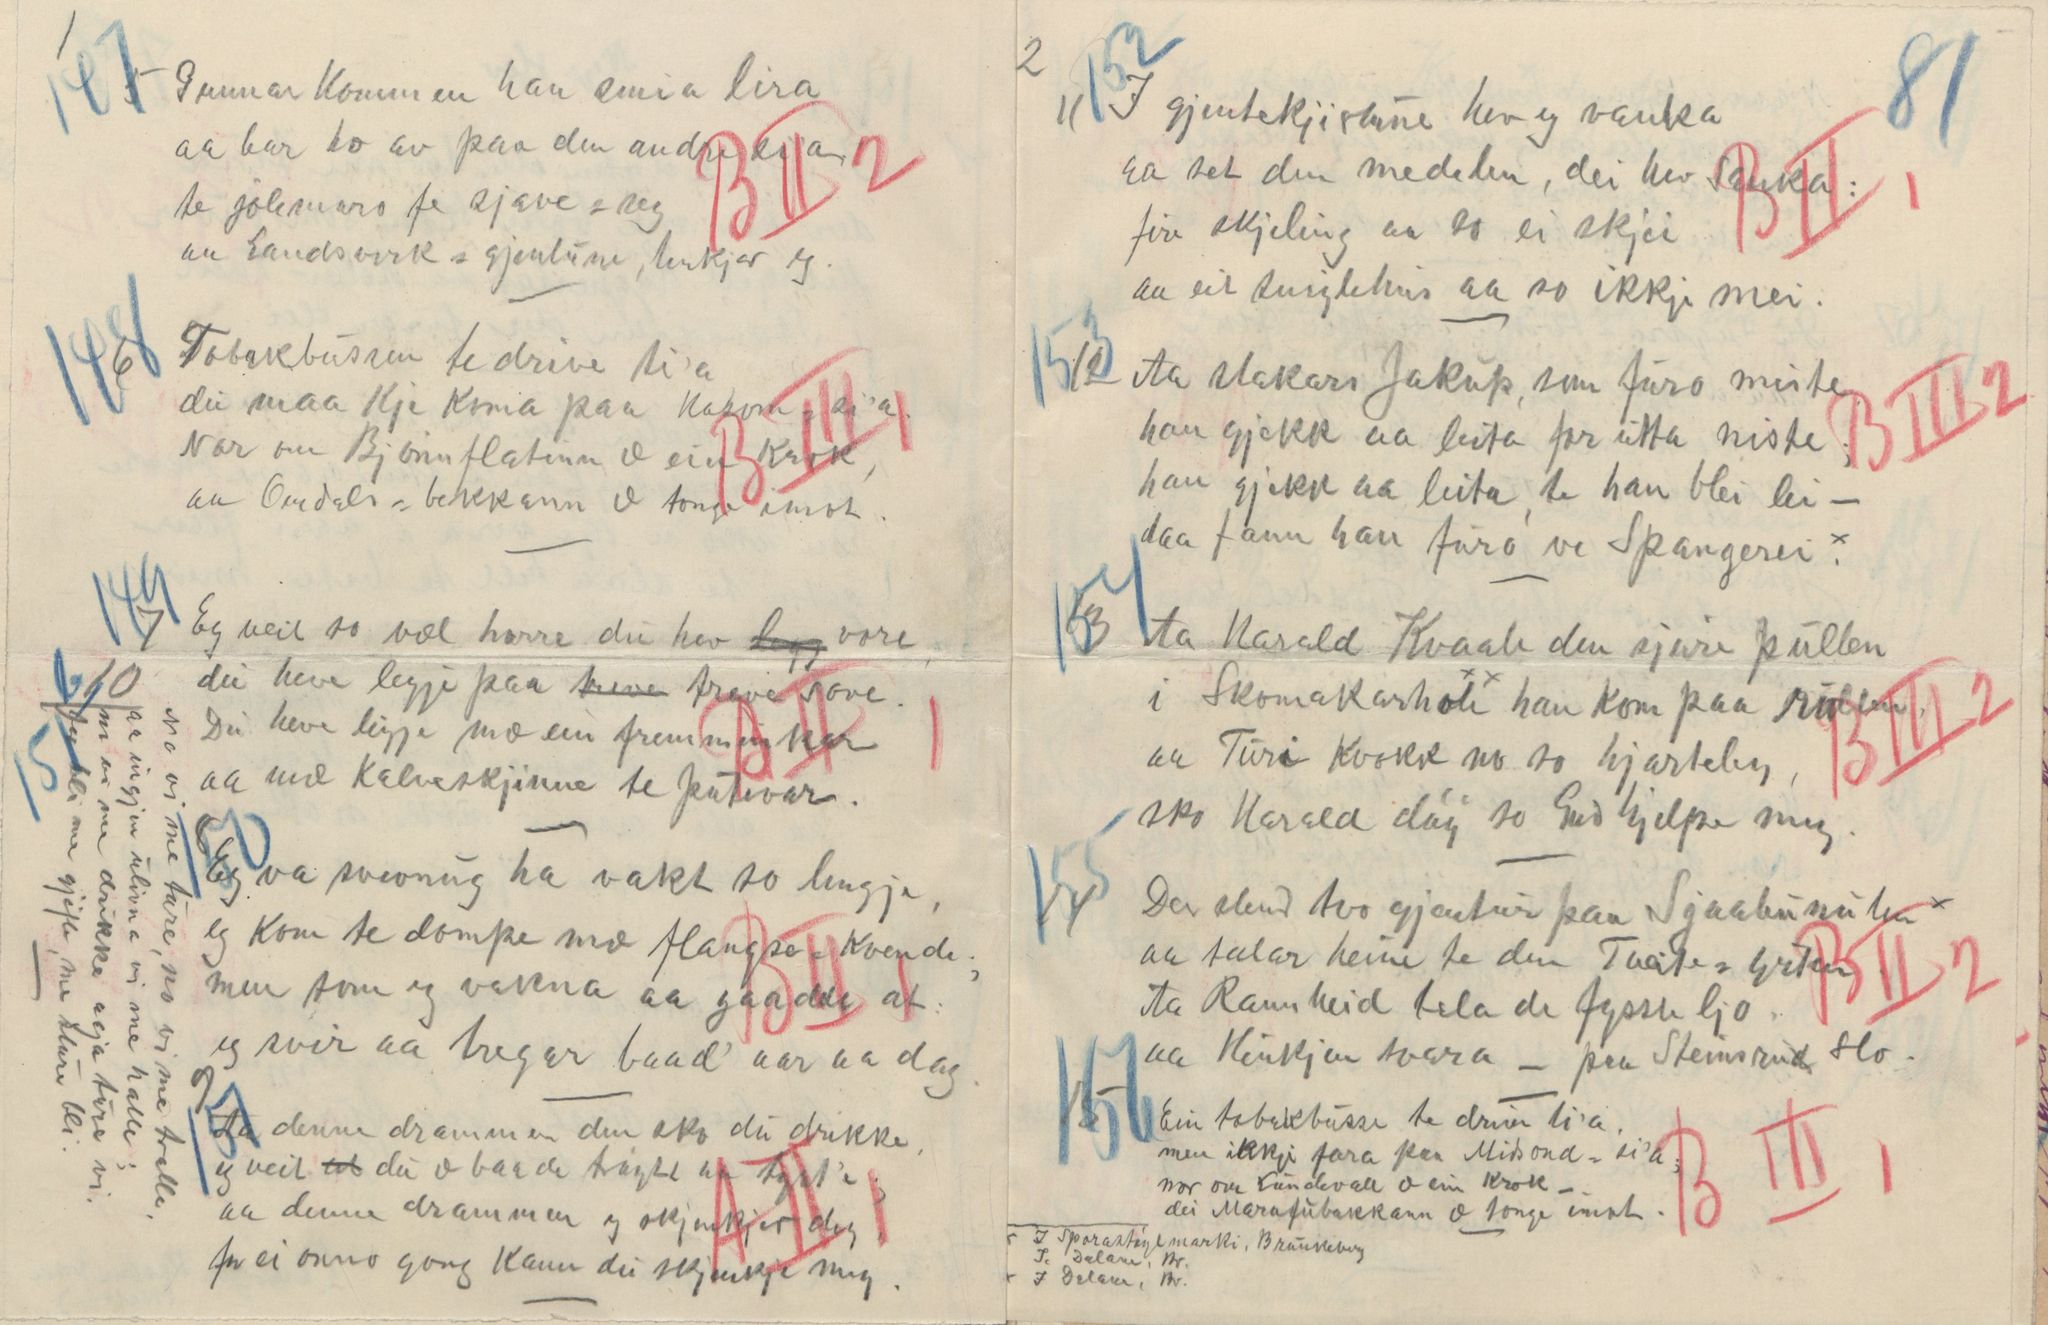 1
147
5 Gunnar Kommen han smia lira
aa bar ho av paa den andre sia
te jolemaro fe sjave = seg
aa Landsverk = gjentune, tenkjer eg.
B II 2
148
6 Tobakbussen te drive ti'a
du maa kje koma paa
Nor om Bjønnflatinn æ ein Krok,
aa Omdals = bekkann æ tonge imot.
B III 1
149
7 Eg veit so væl horre du hev vore,
du heve legje paa framande sove.
Du heve legje mæ ein fremmin kar
aa mæ Kalveskjinne te putevar.
B II 1
150
8 Eg va svevnug ha vakt so lengje,
eg kom te dompe mæ flangse = Kvende;
men som eg vakna aa gaadde at:
eg svir aa tregar baad' aar aa dag.
B II 1
151
9 Aa denne drammen den sko du drikke,
eg veit du æ baade trøytt aa tyst'e;
aa denne drammen eg skjenkjer deg,
fe ei onno gong kann du skjenkje meg.
A II 1
10 No vi me ture, no vi me tralle,
aa ingjen ulivna vi me halle;
no vi me drikke aa ture vi.
fy bli me gjifte, me sture bli.
2
81
152
11 I gjentekjistune hev eg vanka
aa set den medelen, dei hev sanka:
fire skjeling aa so ei skjei
aa eit sniglehus aa so ikkje mei.
B II 1
153
12 Aa stakars Jakup, som furo miste,
han gjekk aa leita for utta niste;
han gjekk aa leita, te han blei lei —
daa fann han furo ve Spangerei x.
B III 2
154
13 Aa Harald Kvaale den sjure pullen
i Skomakarholi xx han kom paa rullen,
aa Turi Kvokk no so hjarteleg,
sko Harald døy so Gud hjelpe meg.
B III 2
155
14 Der stend two gjentur paa Sjaabunuten x
aa talar heine te den Tveite = guten.
Aa Rannheid tala de fysste ljo
aa Hinkjen svara — paa Steinsrud slo.
B II 2
156
15 Ein tobakbusse te drive ti'a,
men ikkje fara paa Midsond = si'a;
nor om Lundevall æ ein Krok —
dei Marufubakkann æ tonge imot.
B III 1
x I Sporastøylmarki, Brunkeberg
I. Dalane, Br.
x I Dalane, Br.